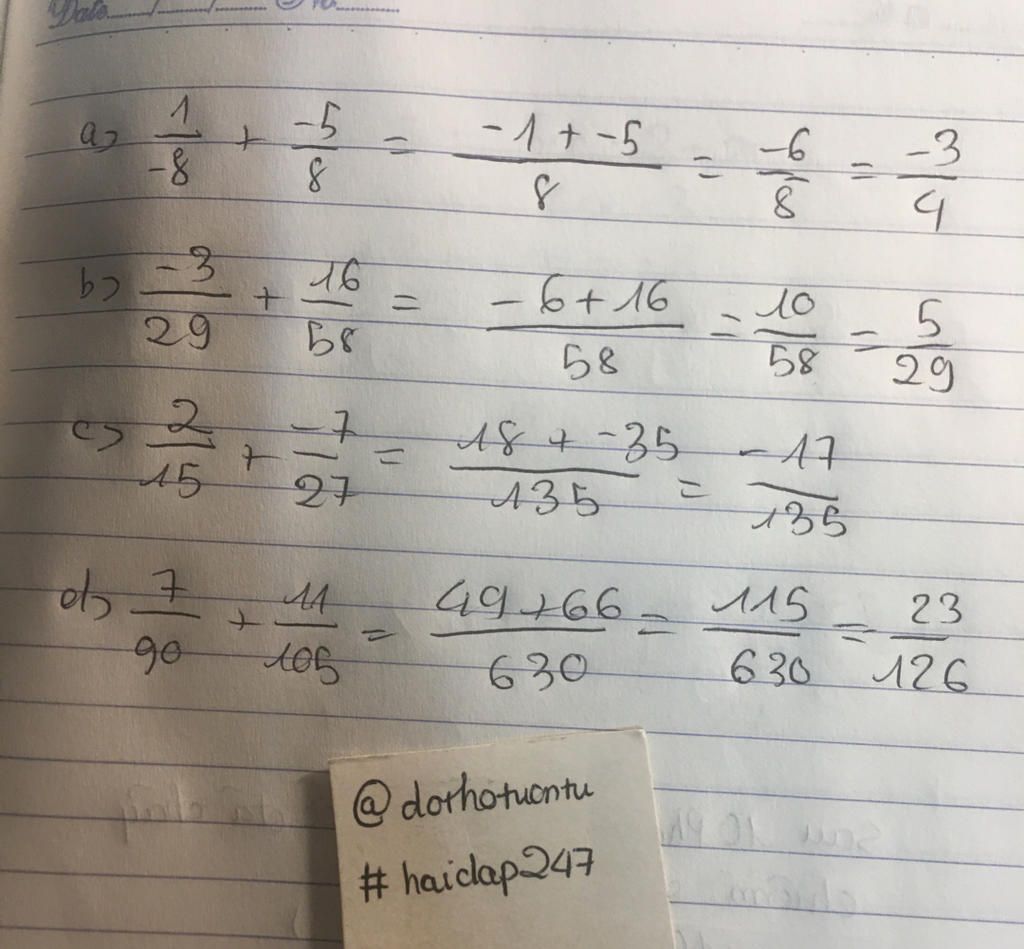 Date / / No.
a) 1/-8 + -5/8 = -1 + -5/8 = -6/8 = -3/4
b) -3/29 + 16/58 = -6 + 16/58 = 10/58 = 5/29
c) 2/15 + -7/27 = 18 + -35/135 = -17/135
d) 7/90 + 11/105 = 49 + 66/630 = 115/630 = 23/126
@dothotuontu
#haidap247